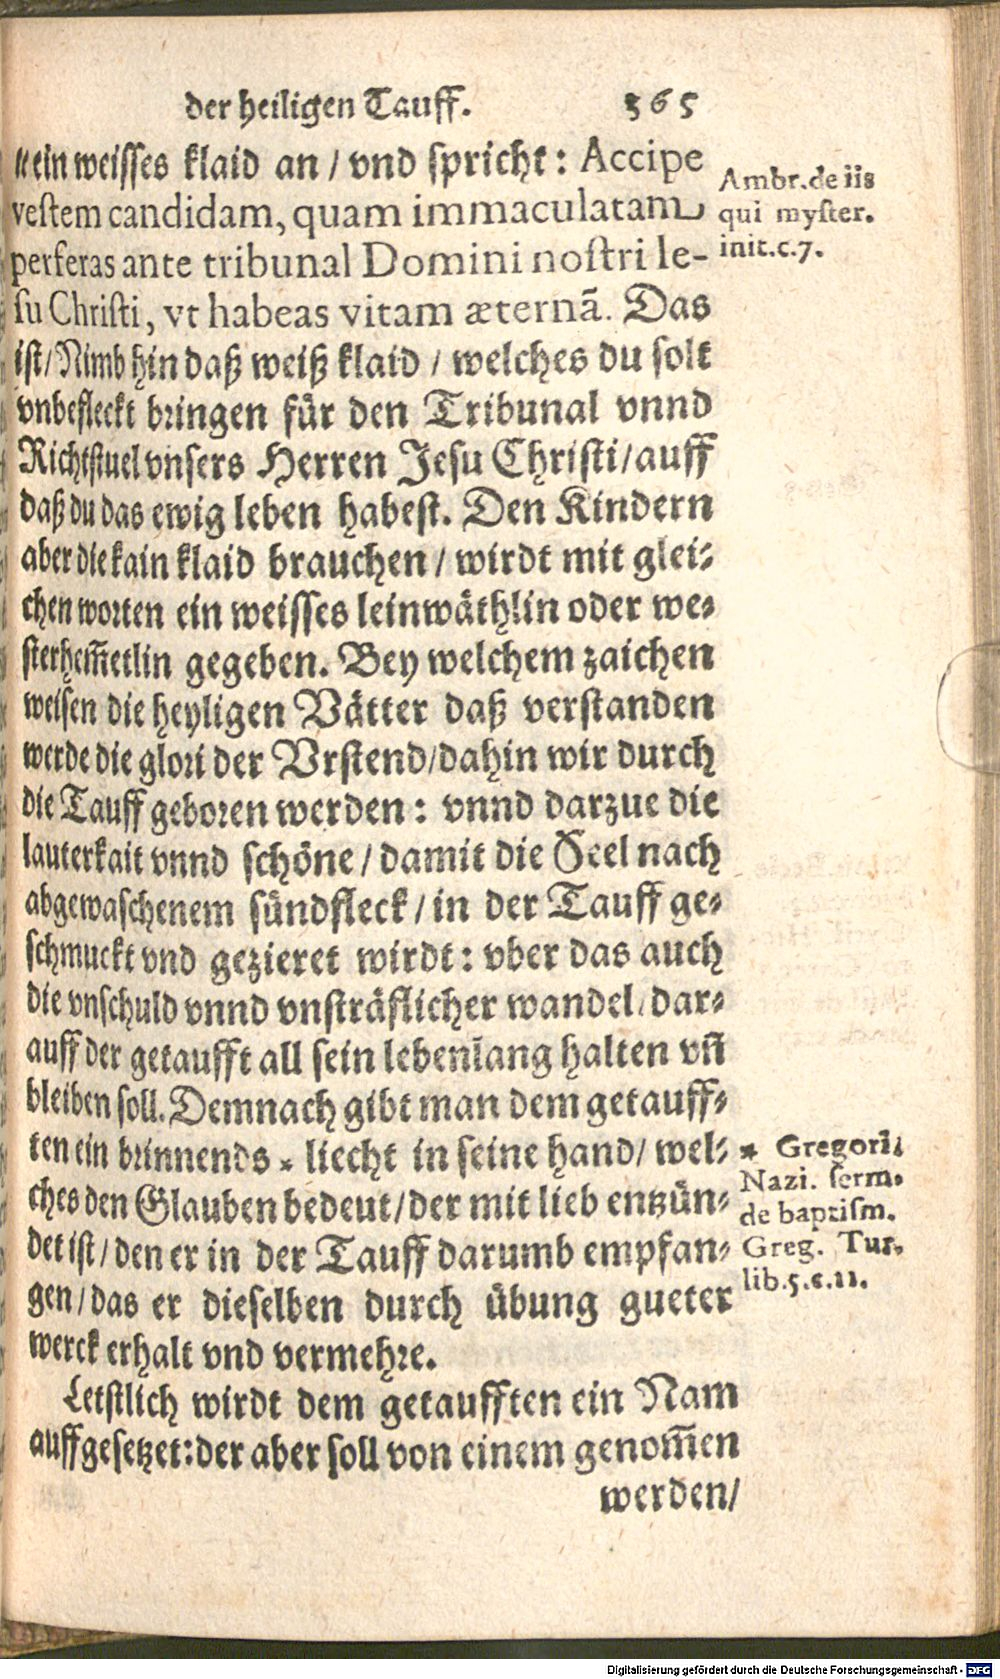 der heiligen Tauff. 365
ein weisses klaid an / vnd spricht: Accipe
vestem candidam, quam immaculatam
perferas ante tribunal Domini nostri Ie-
su Christi, vt habeas vitam æternã. Das
ist / Nimb hin daß weiß klaid / welches du solt
vnbefleckt bringen für den Tribunal vnnd
Richtstuel vnsers Herren Jesu Christi / auff
daß du das ewig leben habest. Den Kindern
aber die kain klaid brauchen / wirdt mit glei-
chen worten ein weisses leinwäthlin oder we-
sterhem̃etlin gegeben. Bey welchem zaichen
weisen die heyligen Vätter daß verstanden
werde die glori der Vrstend / dahin wir durch
die Tauff geboren werden: vnnd darzue die
lauterkait vnnd schöne / damit die Seel nach
abgewaschenem sündfleck / in der Tauff ge-
schmuckt vnd gezieret wirdt: vber das auch
die vnschuld vnnd vnsträflicher wandel / dar-
auff der getaufft all sein lebenlang halten vñ
bleiben soll. Demnach gibt man dem getauff-
ten ein brinnends * liecht in seine hand / wel-
ches den Glauben bedeut / der mit lieb entzün-
det ist / den er in der Tauff darumb empfan-
gen / das er dieselben durch übung gueter
werck erhalt vnd vermehre.
Letstlich wirdt dem getaufften ein Nam
auffgesetzet: der aber soll von einem genom̃en
werden /
Ambr. de iis
qui myster.
init. c. 7.
* Gregori.
Nazi. serm.
de baptism.
Greg. Tur.
lib. 5. c. 11.
Digitalisierung gefördert durch die Deutsche Forschungsgemeinschaft - DFG